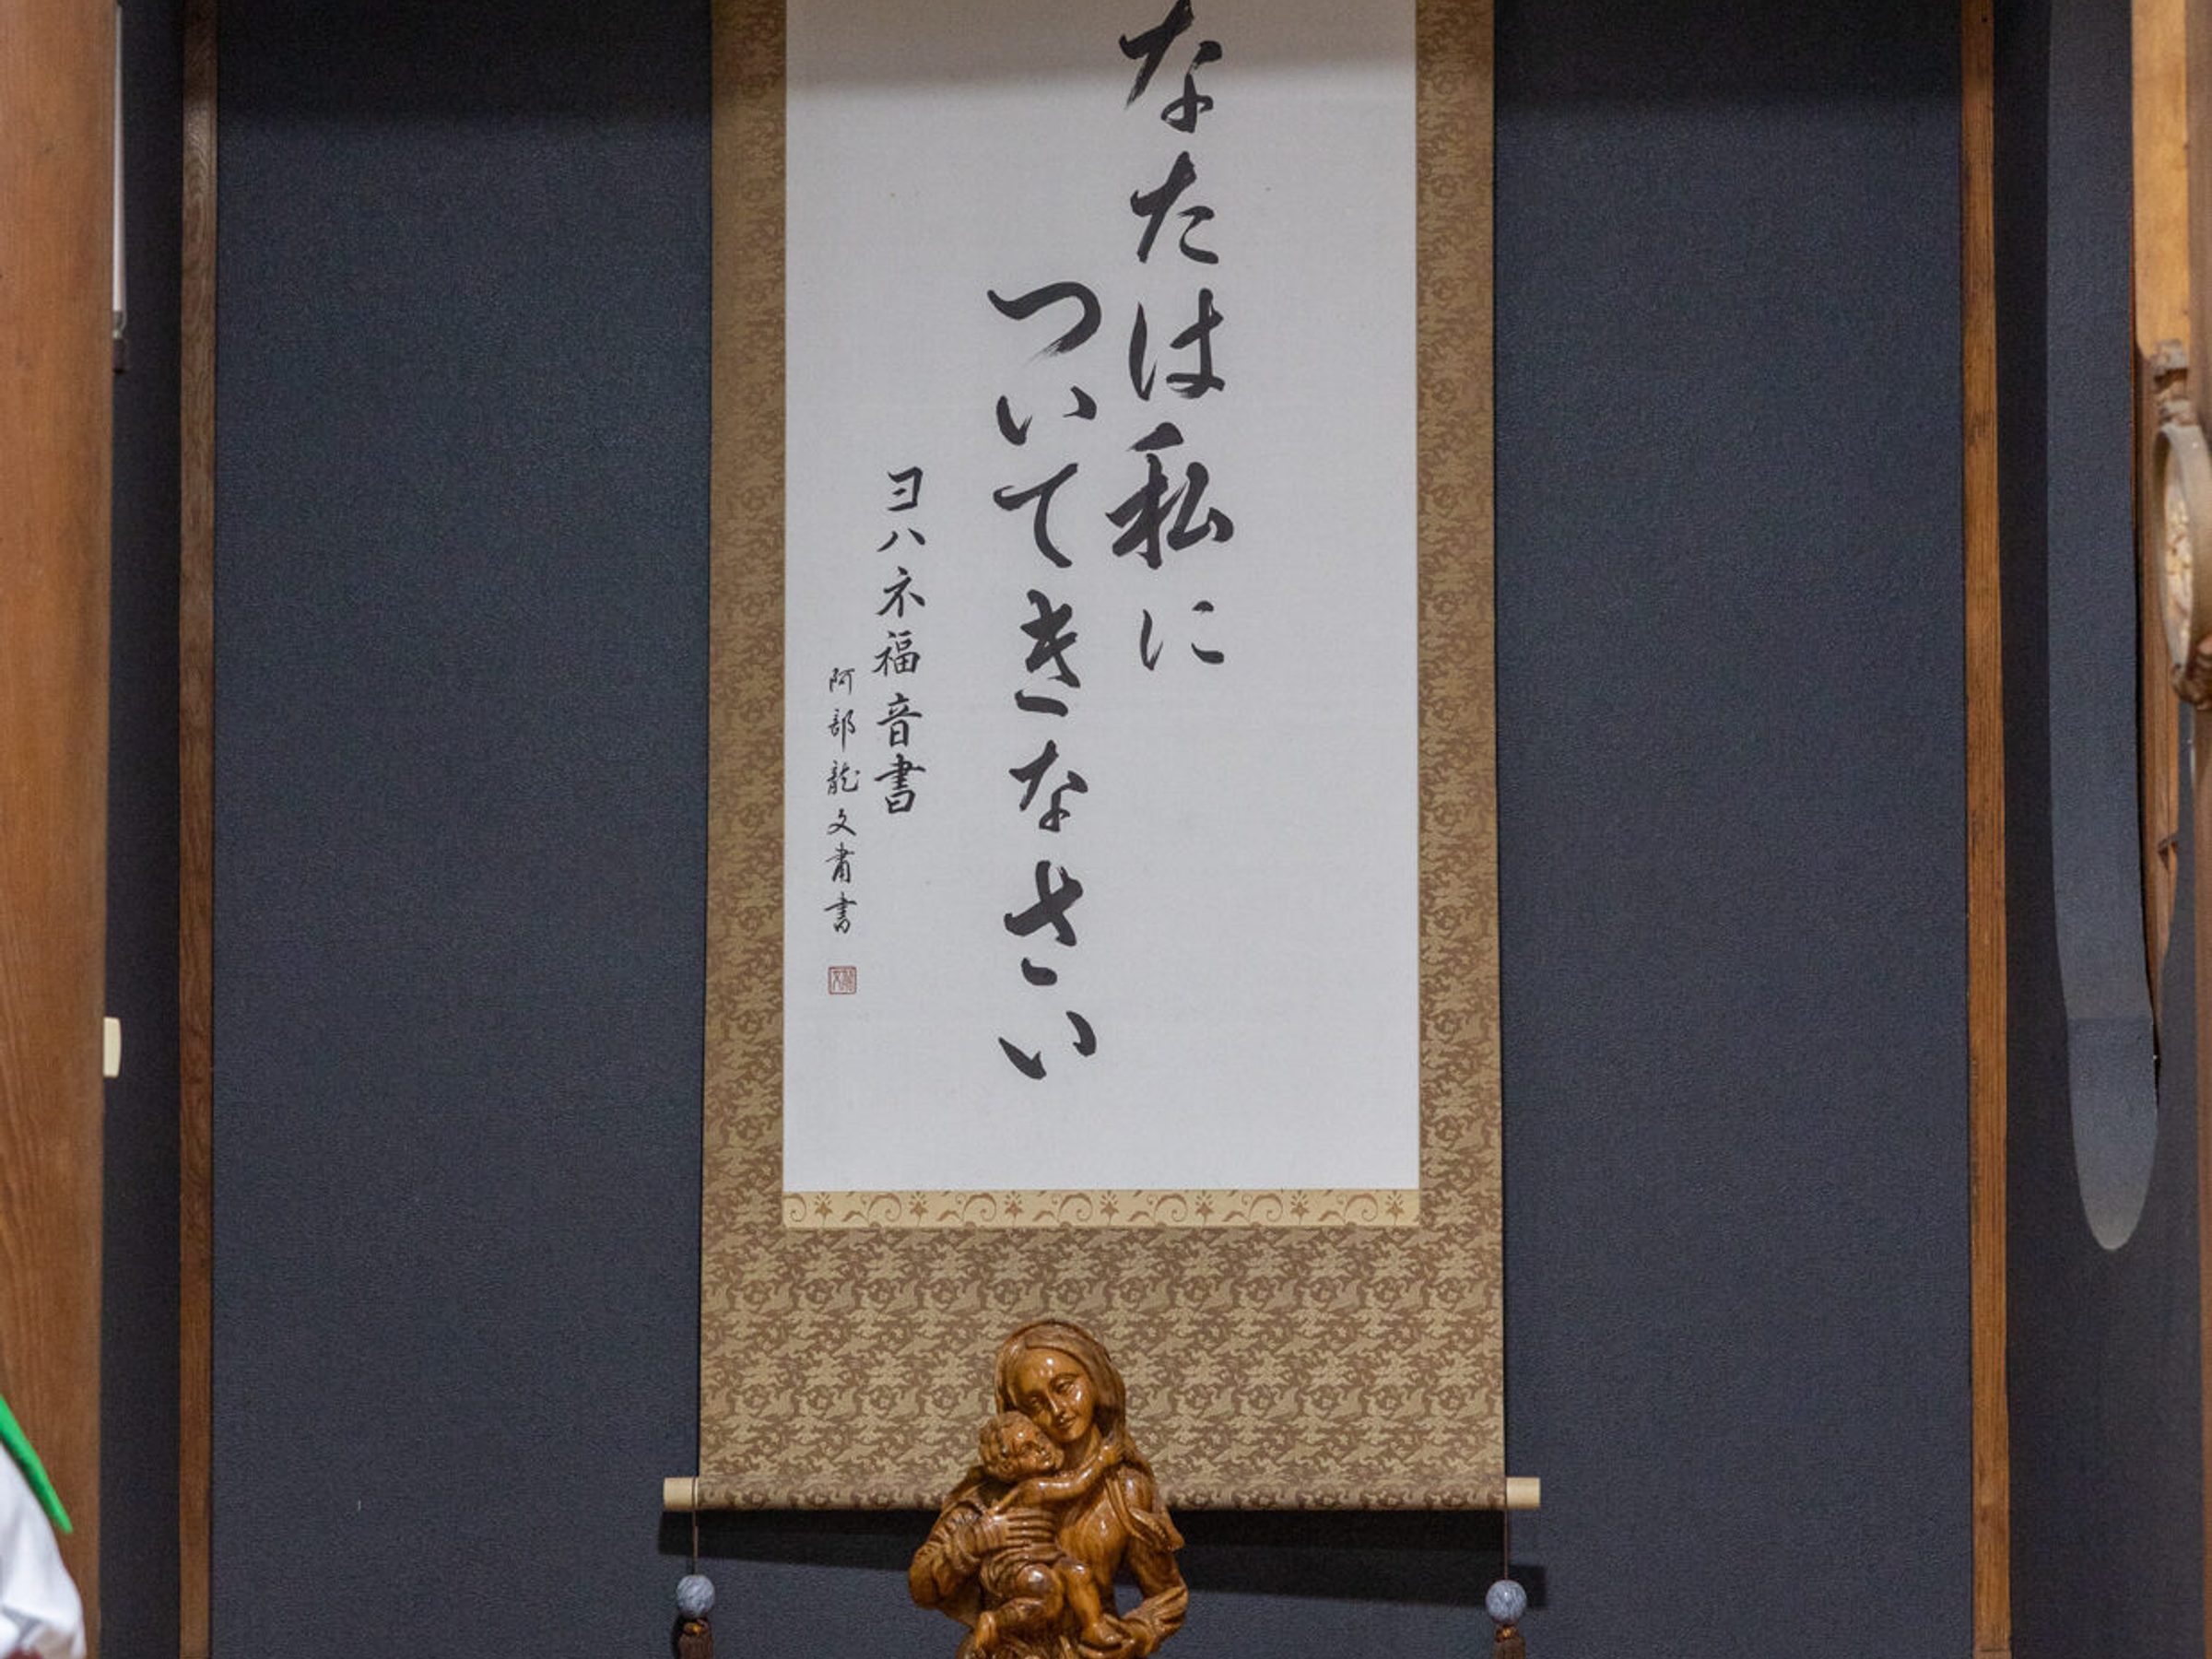 なたは私に
ついてきなさい
ヨハネ福音書
阿部龍文書